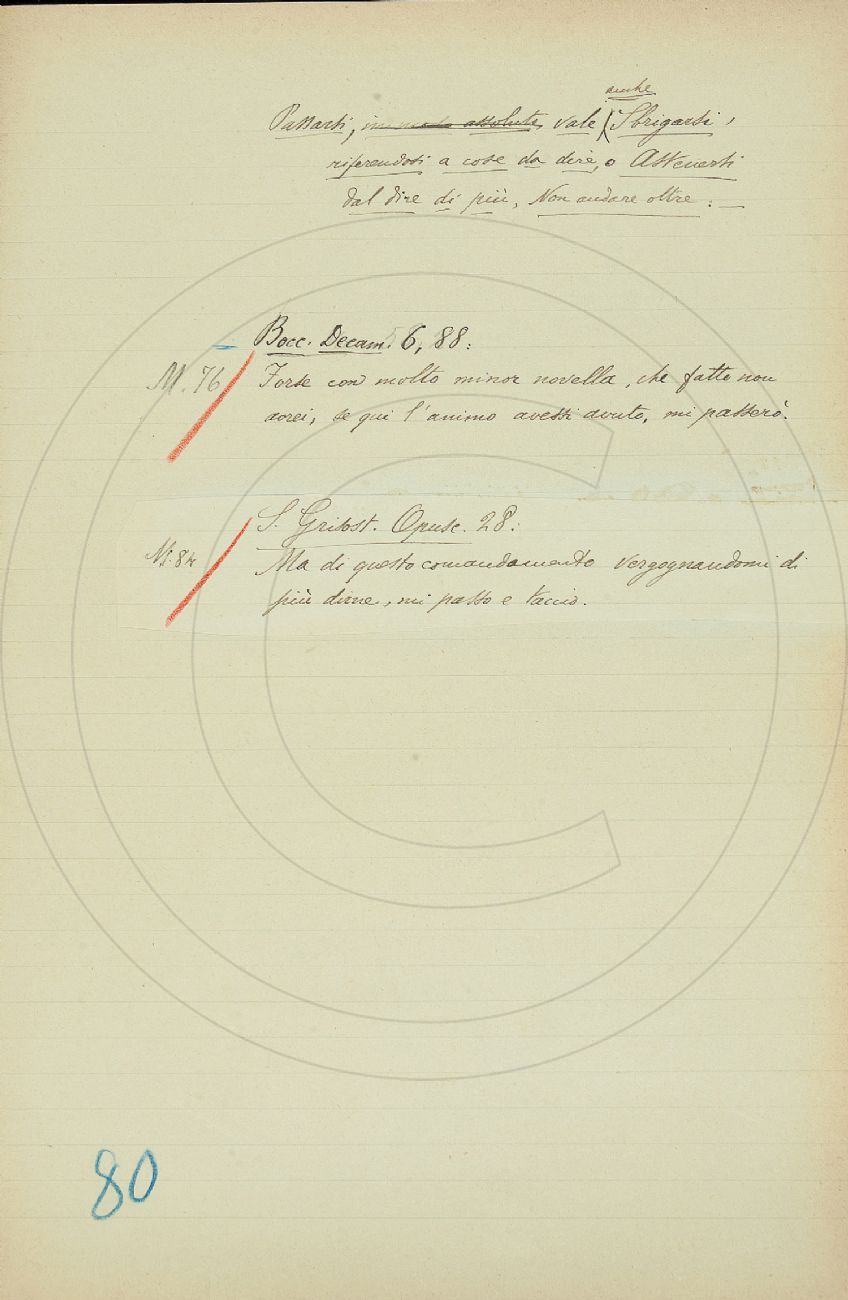 anche
Passarsi, in modo assoluto, vale Sbrigarsi,
riferendosi a cose da dire, o Astenersi
dal dire di più, Non andare oltre: —
Bocc. Decam. 6, 88:
M. 76
Forse con molto minor novella, che fatto non
avrei, se qui l'animo avessi avuto, mi passerò.
S. Grisost. Opusc. 28:
Ms. 84
Ma di questo comandamento vergognandomi di
più dirne, mi passo e taccio.
80